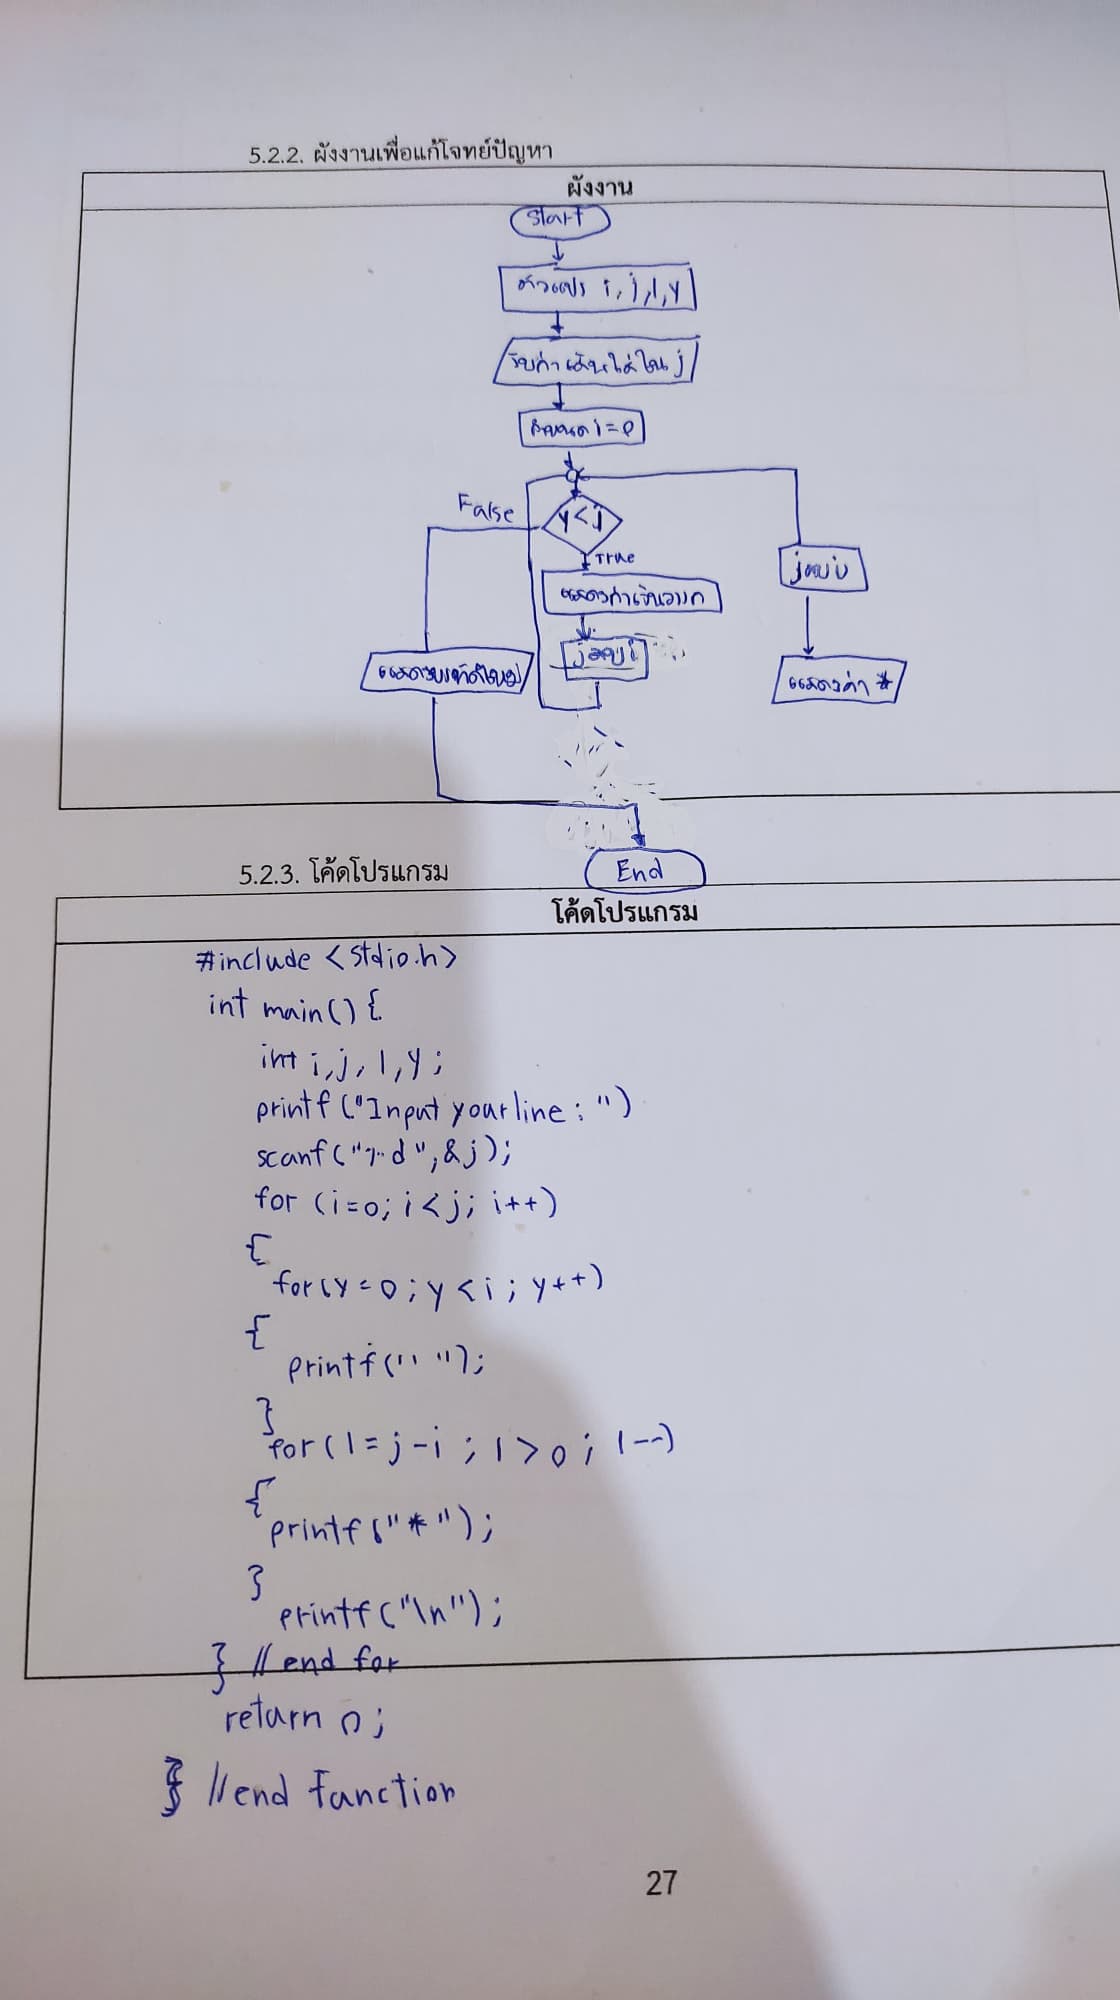 5.2.2. ผังงานเพื่อแก้โจทย์ปัญหา
ผังงาน
Start
ตัวแปร i, j, l, y
รับค่าเส้นใส่ใน j
กำหนด i=0
y<j
False
True
แสดงค่าเว้นวรรค
jลบi
jลบi
แสดงบรรทัดใหม่
แสดงค่า *
End
5.2.3. โค้ดโปรแกรม
โค้ดโปรแกรม
#include <stdio.h>
int main() {
int i,j, l,y;
printf ("Input your line: ")
scanf("%d",&j);
for (i=0; i<j; i++)
{
for(y=0; y<i; y++)
{
printf(" ");
}
for(l=j-i ; l>0; l--)
{
printf("*");
}
printf("\n");
} //end for
return 0;
} //end function
27